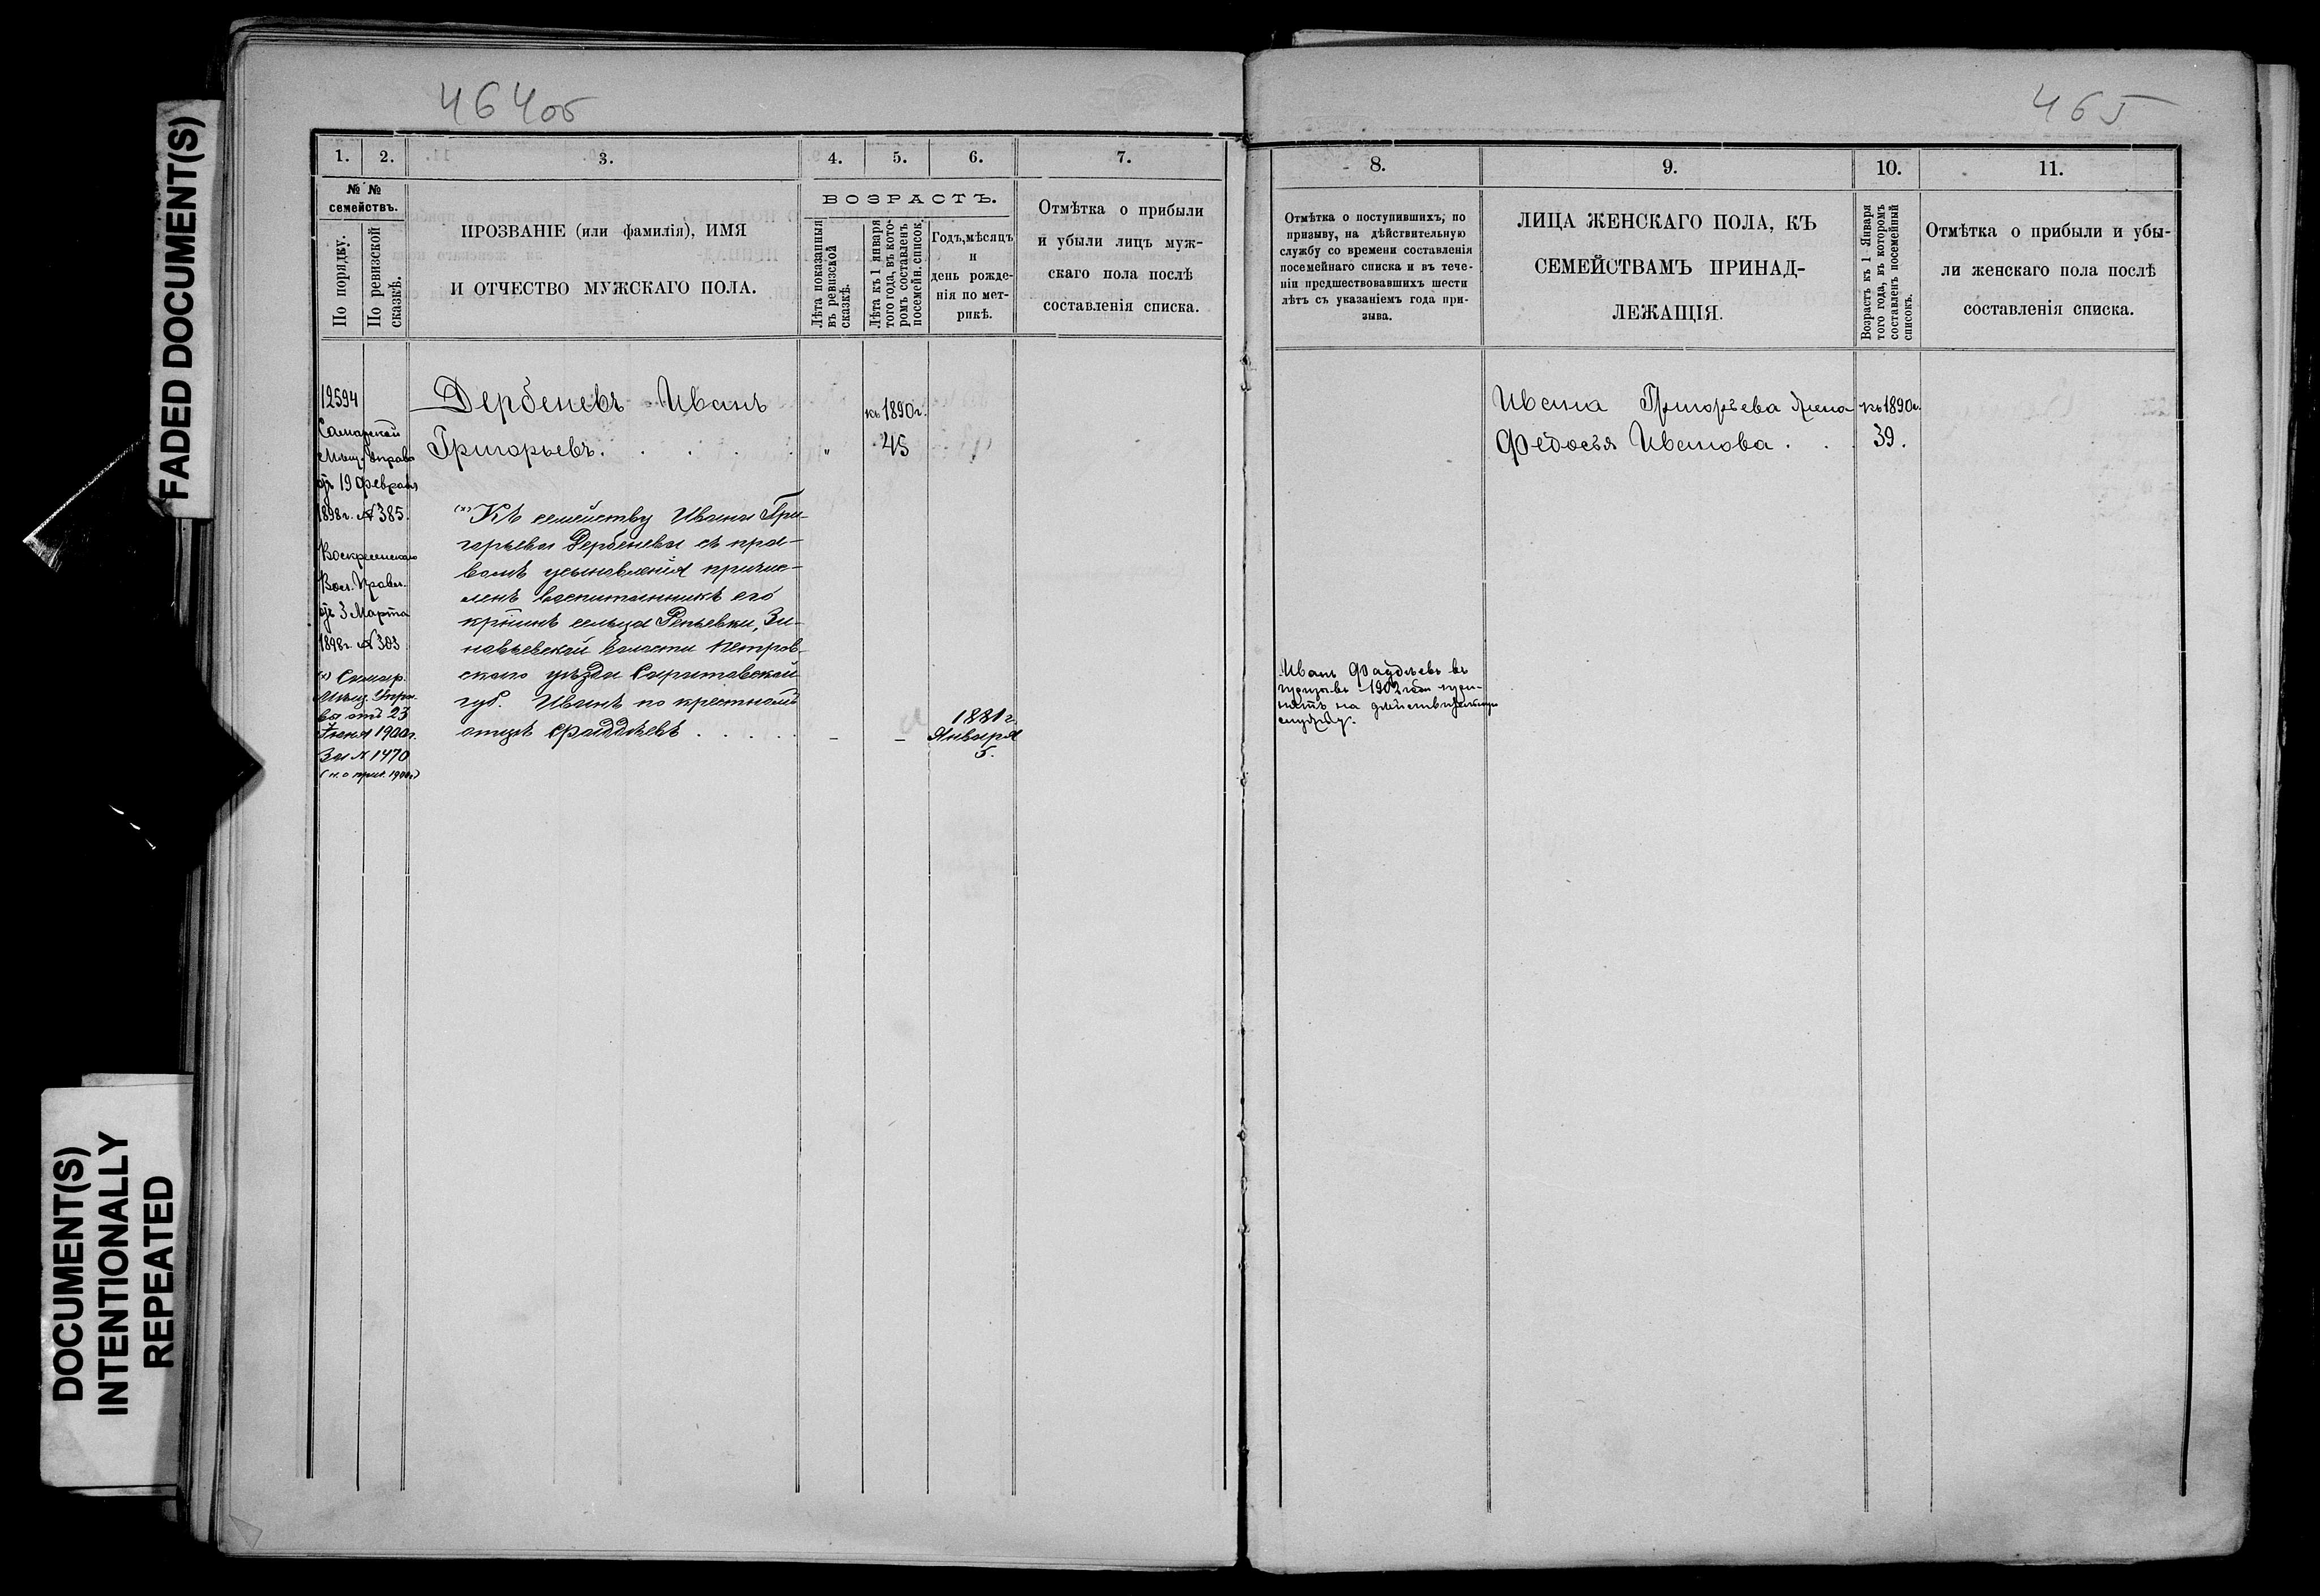 FADED DOCUMENT(S)
DOCUMENT(S)
INTENTIONALLY
REPEATED
464об
1.
2.
3.
4.
5.
6.
7.
№ №
семействъ.
По порядку.
По ревизской
сказкѣ.
ПРОЗВАНІЕ (или фамилія), ИМЯ
И ОТЧЕСТВО МУЖСКАГО ПОЛА.
ВОЗРАСТЪ.
Лѣта показанныя
въ ревизской
сказкѣ.
Лѣта къ 1 января
того года, въ кото-
ромъ составленъ
посемейн. список.
Годъ, мѣсяцъ
и
день рожде-
нія по мет-
рикѣ.
Отмѣтка о прибыли
и убыли лицъ муж-
скаго пола послѣ
составленія списка.
12594
Самарской
Мѣщ. Управы
отъ 19 Февраля
1898 г. № 385.
Воскресенскаго
Вол. Правл.
отъ 3 Марта
1898г. № 303
(х) Самар.
Мѣщ. Упра-
вы отъ 23
Іюня 1900г.
За № 1470
Дербеневъ Иванъ
Григорьевъ.
къ 1890г.
" 45
(х) Къ семейству Ивана Гри-
горьева Дербенева съ пра-
вомъ усыновленія причис-
ленъ воспитанникъ его
крѣинъ сельца Репьевки, Зи-
новьевской волости Петров-
скаго уѣзда Саратовской
губ. Иванъ по крестному
отцу Фаддѣевъ . . . . .
– –
1881 г.
Января
5.
465
8.
9.
10.
11.
Отмѣтка о поступившихъ, по
призыву, на дѣйствительную
службу со времени составленія
посемейнаго списка и въ тече-
ніи предшествовавшихъ шести
лѣтъ съ указаніемъ года при-
зыва.
ЛИЦА ЖЕНСКАГО ПОЛА, КЪ
СЕМЕЙСТВАМЪ ПРИНАД-
ЛЕЖАЩІЯ.
Возрастъ къ 1 Января
того года, въ которомъ
составленъ посемейный
списокъ.
Отмѣтка о прибыли и убы-
ли женскаго пола послѣ
составленія списка.
Ивана Григорьева жена
Федосья Иванова . . .
къ 1890г.
39.
Иванъ Фаддѣевъ въ
призывъ 1902 года при-
нятъ на дѣйствительную
службу.